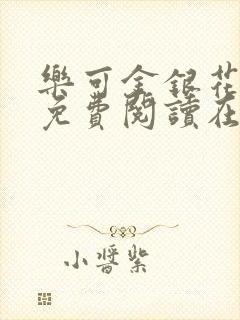 樂可金銀花
免費閱讀在
小醬紫